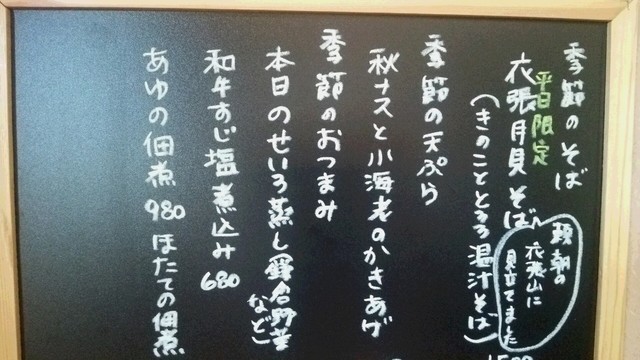 季節のそば
平日限定
衣張月見そば
(きのこととろろ温汁そば)
頼朝の
衣張山に
見立てました
季節の天ぷら
秋ナスと小海老のかきあげ
季節のおつまみ
本日のせいろ蒸し(鎌倉野菜
など)
和牛すじ塩煮込み 680
あゆの佃煮 980 ほたての佃煮